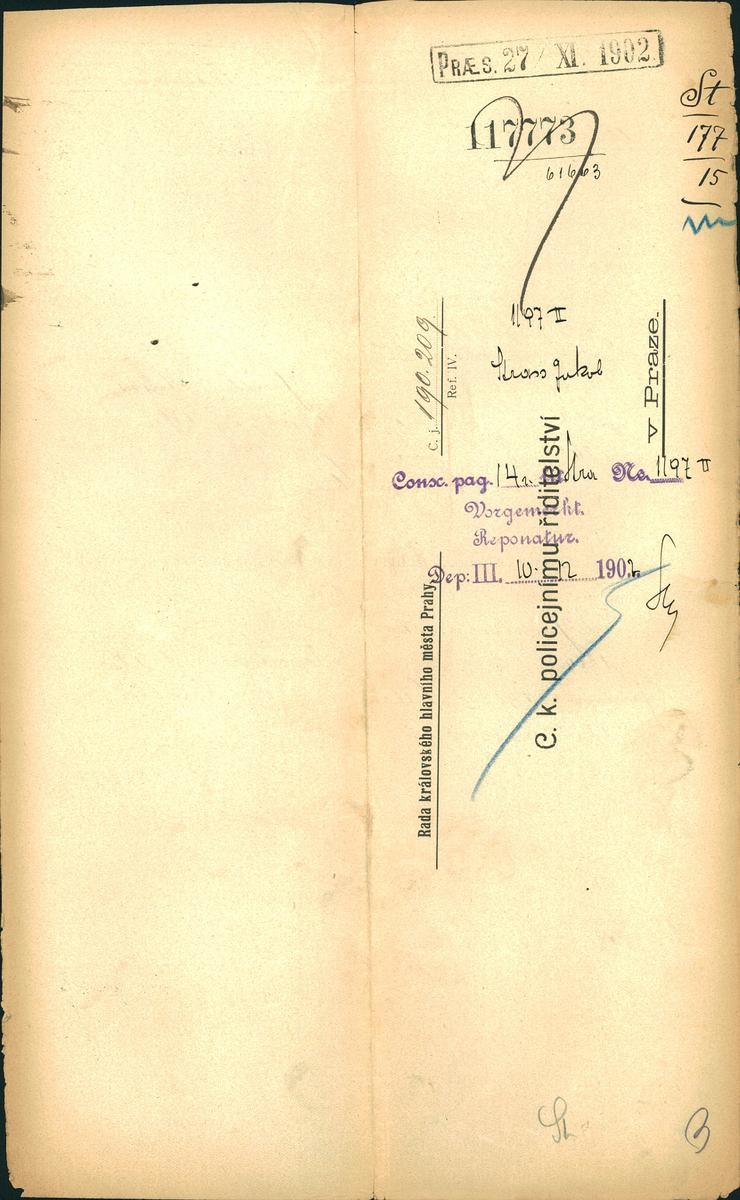 PRÆS. 27 / XI. 1902
St
177
15
117773
61663
1197 II
Stross Jakob
Consc. pag. 14 Stra No. 1197 II
Vorgemerkt.
Reponatur.
Dep: III. 10. 12 1902
Č. j. 190.209.
Ref. IV.
Rada královského hlavního města Prahy
C. k. policejnímu řiditelství
v Praze.
St
3